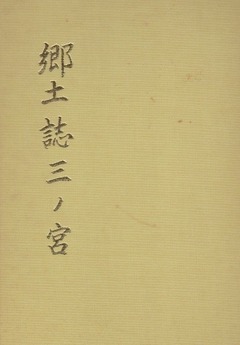 郷土誌三ノ宮